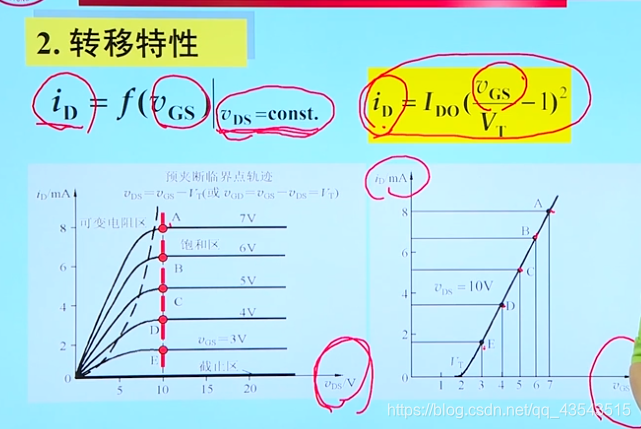 2. 转移特性
iD = f(vGS)|vDS=const.
iD = IDO(vGS/VT −1)²
预夹断临界点轨迹
vDS=vGS−VT(或 vGD=vGS−vDS=VT)
iD/mA
可变电阻区
饱和区
8
6
4
2
0
A
B
C
D
E
7V
6V
5V
4V
vGS=3V
截止区
5
10
15
20
vDS/V
iD/mA
8
6
4
2
0
A
B
C
D
E
vDS=10V
VT
1 2 3 4 5 6 7
vGS
https://blog.csdn.net/qq_43543515